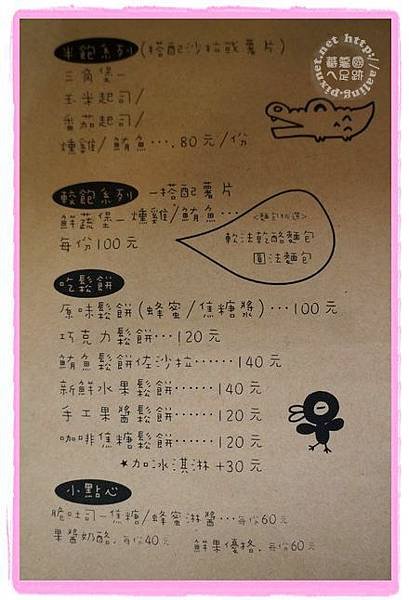 半飽系列(搭配沙拉或薯片)
三角堡—
玉米起司/
番茄起司/
燻雞/鮪魚‧‧‧‧80元/份
蕃薯國
八足跡
軟飽系列 —搭配薯片
鮮蔬堡—燻雞/鮪魚‧‧‧
每份100元
<麵包任選>
軟法乾酪麵包
圓法麵包
吃鬆餅
原味鬆餅(蜂蜜/焦糖漿)‧‧‧100元
巧克力鬆餅‧‧‧120元
鮪魚鬆餅佐沙拉‧‧‧‧‧‧140元
新鮮水果鬆餅‧‧‧‧‧‧140元
手工果醬鬆餅‧‧‧‧‧‧120元
咖啡焦糖鬆餅‧‧‧‧‧‧120元
★加冰淇淋+30元
小點心
脆吐司—焦糖/蜂蜜淋醬‧‧‧每份60元
果醬奶酪.每份40元 鮮果優格.每份60元